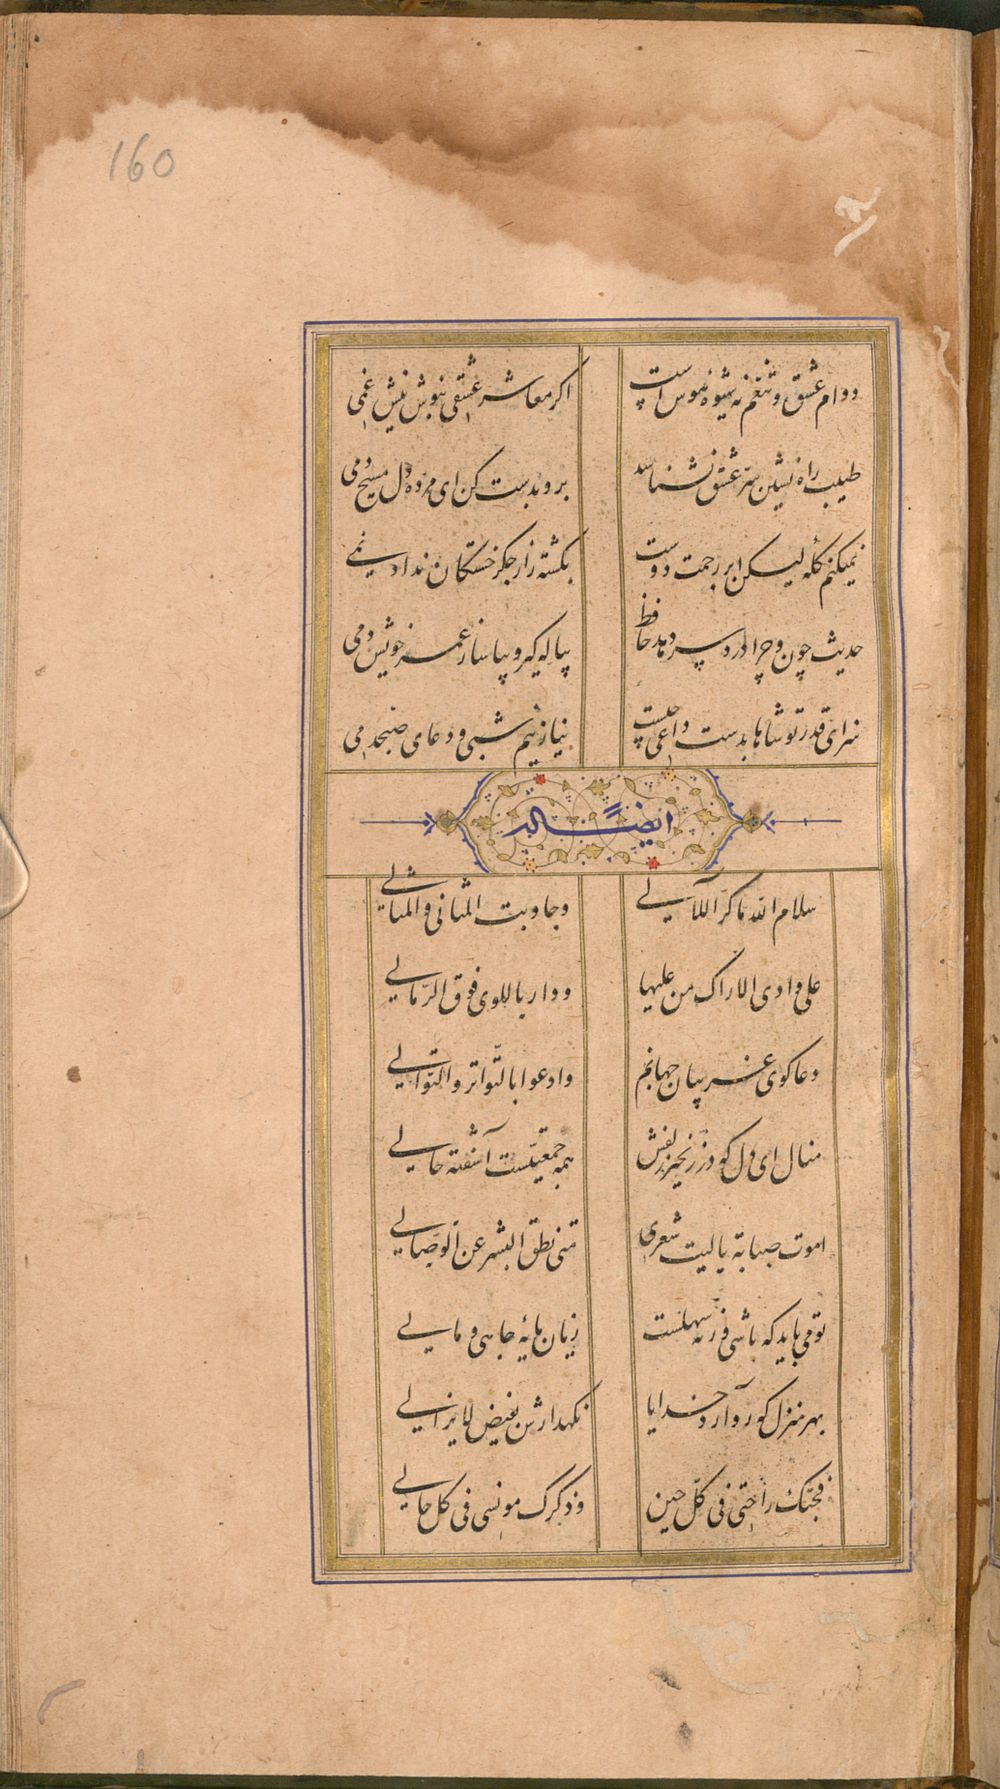 160
دوام عشق و تنعم نه شیوه هوس است
اکر معاشر عشقی بنوش نیش غمی
طبیب راه نشین سر عشق نشناسد
برو بدست کن ای مرده دل مسیح دمی
نمیکنم کله لیکن ابر رحمت دوست
بکشته زار جکر خستکان نداد نمی
حدیث چون و چرا درد سر دهد حافظ
پیاله کیر و بیاساز عمر خویش دمی
سزای قدر تو شاها بدست داعی چیست
نیاز نیم شبی و دعای صبحدمی
ایضا له
سلام الله ماکر اللآلیلے
وجاوبت المثانی والمثالے
علی وادی الاراک من علیها
و دار باللوی فوق الرمالے
دعاکوی غریبان جهانم
وادعوا بالتواتر والتوالے
منال ای دل که در زنجیر زلفش
همه جمعیتست آشفته حالے
اموت صبابة یا لیت شعری
متی نطق البشر عن الوصالے
تو می باید که باشی ورنه سهلست
زیان مایه جاهی و مالے
بهر منزل که رو آرد خدایا
نکهدارش بفیض لا یزالے
فحبک راحتی فی کل حین
و ذکرک مونسی فی کل حالے